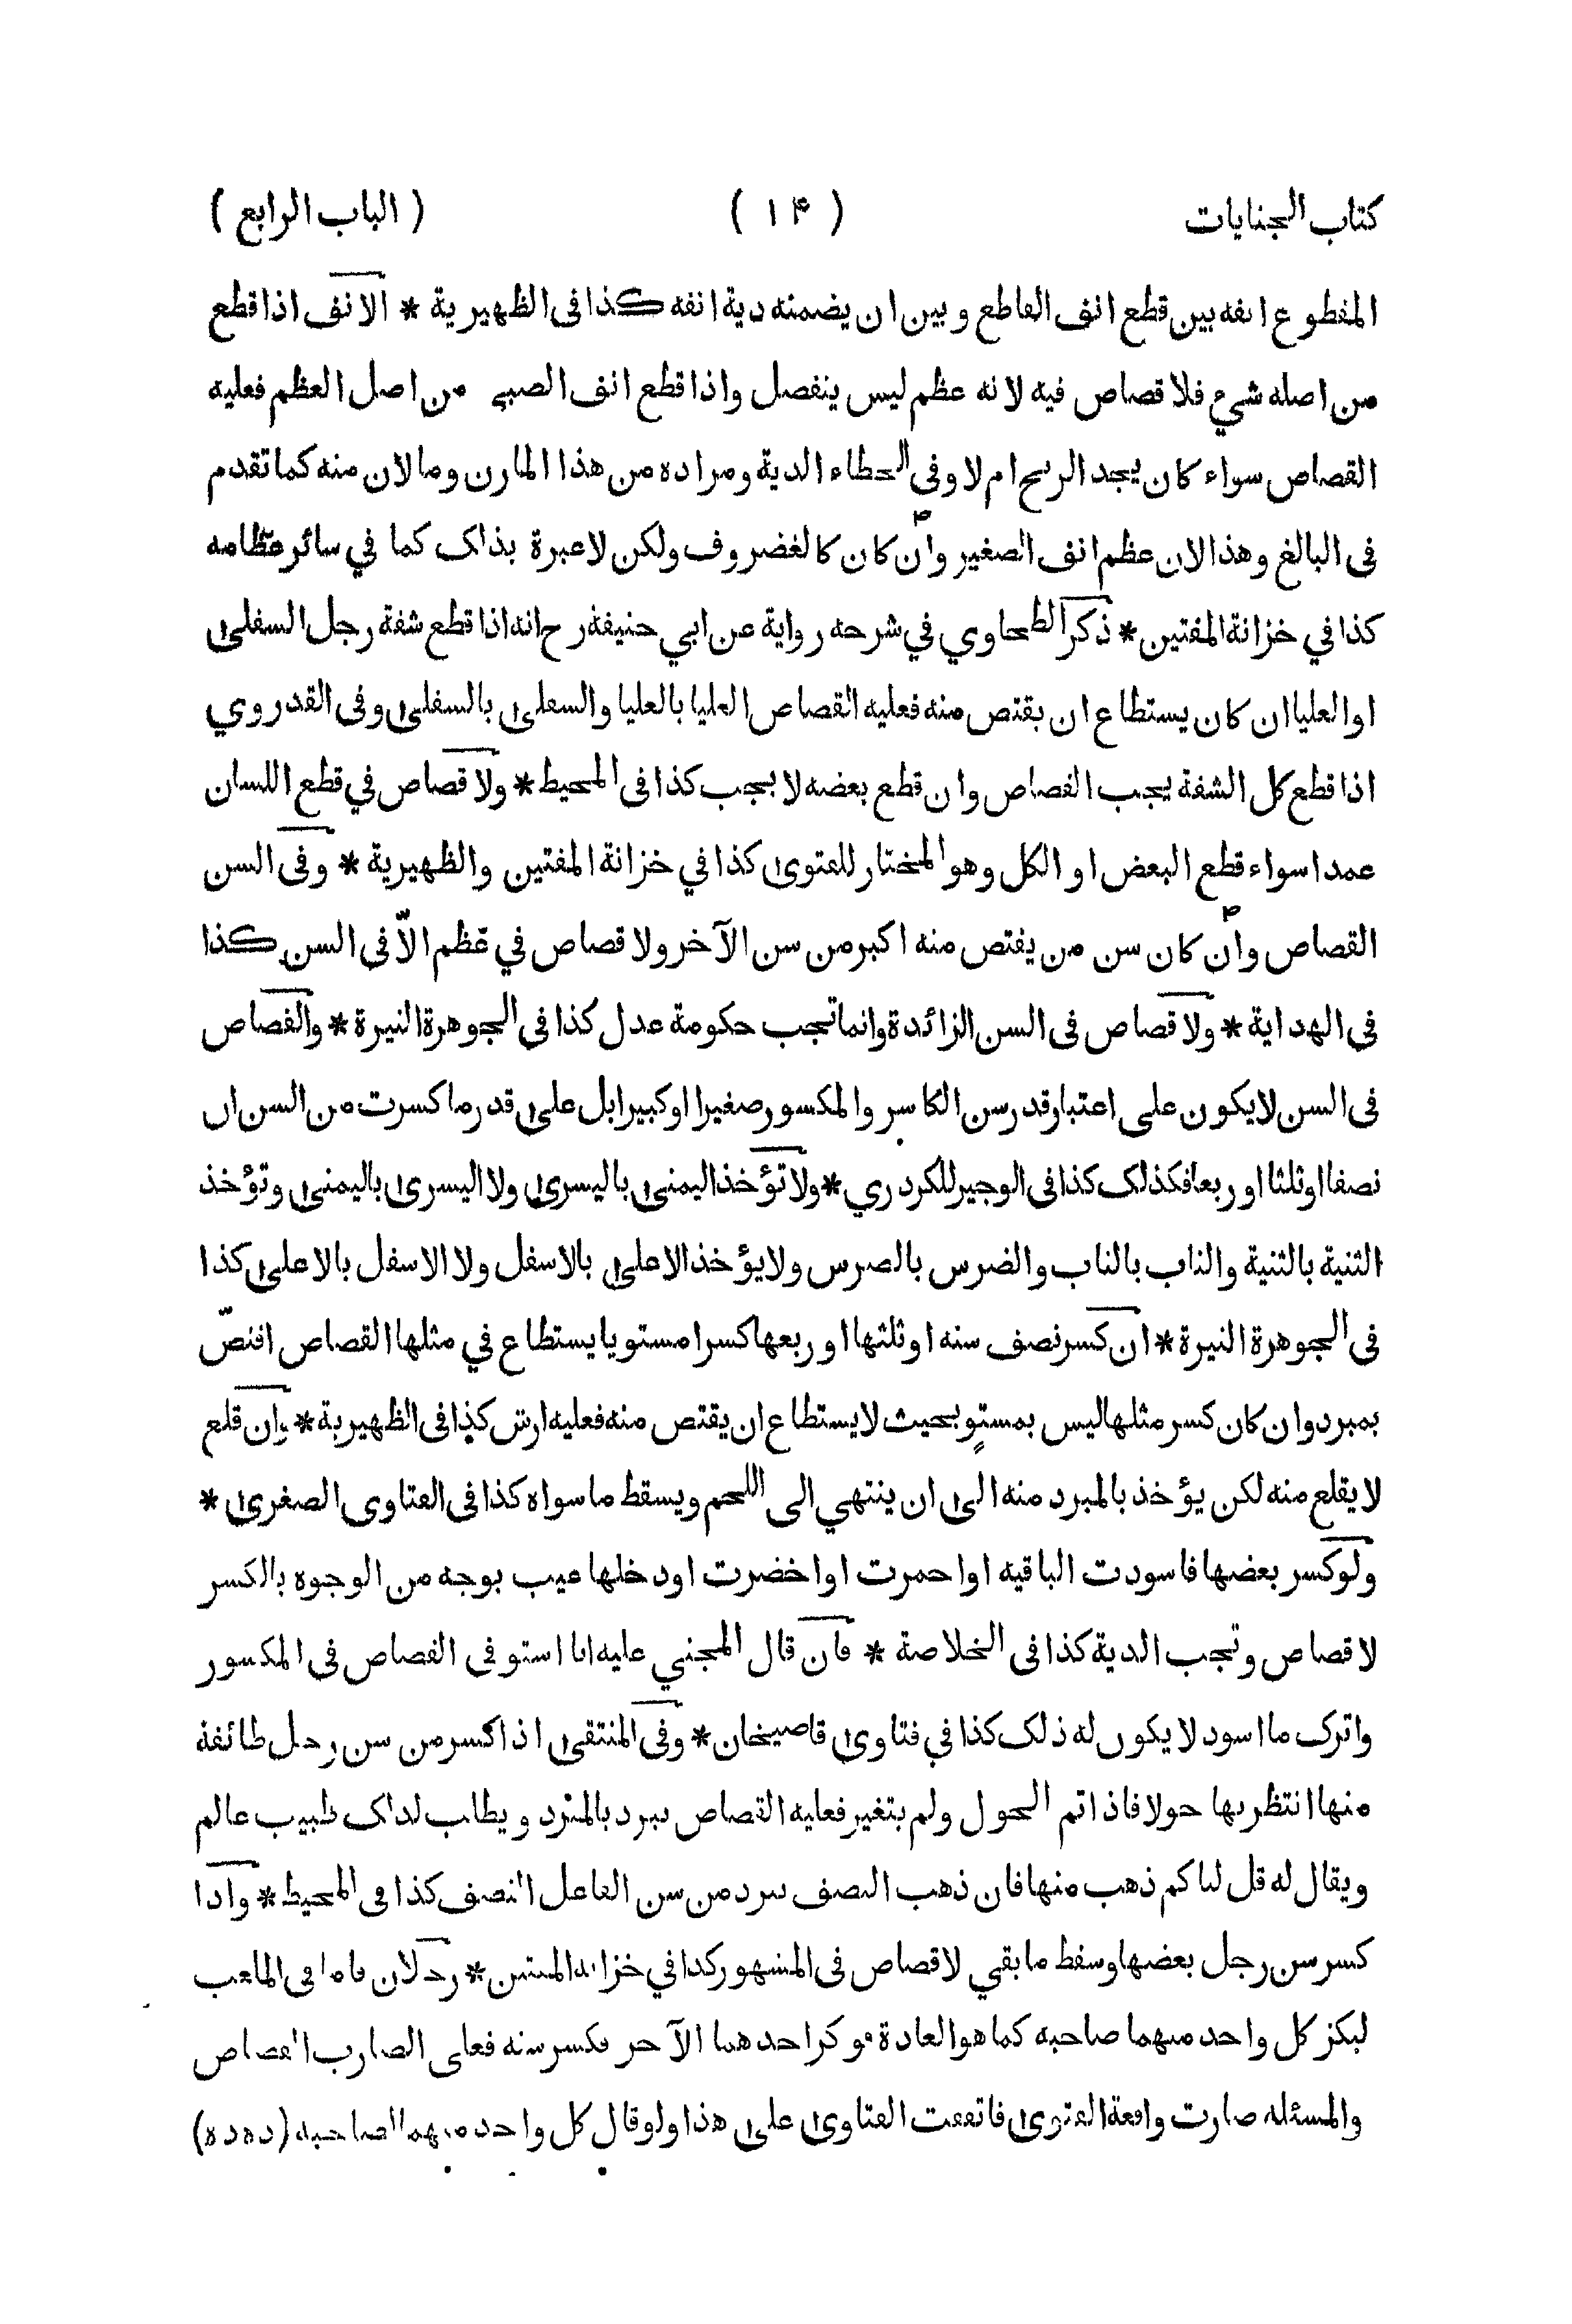 كتاب الجنايات ( ١۴ ) ( الباب الرابع )
المقطوع انفه بين قطع انف القاطع وبين ان يضمنه دية انفه كذا فى الظهيرية * الانف اذا قطع
من اصله شيء فلا قصاص فيه لانه عظم ليس ينفصل واذا قطع انف الصبي من اصل العظم فعليه
القصاص سواء كان يجد الريح ام لا وفى الخطاء الدية ومراده من هذا المارن وما لان منه كما تقدم
فى البالغ وهذا لان عظم انف الصغير وان كان كالغضروف ولكن لا عبرة بذلك كما في سائر عظامه
كذا في خزانة المفتين * ذكر الطحاوي في شرحه رواية عن ابي حنيفة رح انه اذا قطع شفة رجل السفلى
او العليا ان كان يستطاع ان يقتص منه فعليه القصاص العليا بالعليا والسفلى بالسفلى وفى القدروي
اذا قطع كل الشفة يجب القصاص وان قطع بعضه لا يجب كذا فى المحيط * ولا قصاص في قطع اللسان
عمدا سواء قطع البعض او الكل وهو المختار للفتوى كذا في خزانة المفتين والظهيرية * وفى السن
القصاص وان كان سن من يقتص منه اكبر من سن الآخر ولا قصاص في عظم الّا فى السن كذا
فى الهداية * ولا قصاص فى السن الزائدة وانما تجب حكومة عدل كذا فى الجوهرة النيرة * والقصاص
فى السن لا يكون على اعتبار قدر سن الكاسر والمكسور صغيرا او كبيرا بل على قدر ما كسرت من السن ان
نصفا او ثلثا او ربعا فكذلك كذا فى الوجيز للكردري * ولا تؤخذ اليمنى باليسرى ولا اليسرى باليمنى وتؤخذ
الثنية بالثنية والناب بالناب والضرس بالضرس ولا يؤخذ الاعلى بالاسفل ولا الاسفل بالاعلى كذا
فى الجوهرة النيرة * ان كسر نصف سنه او ثلثها او ربعها كسرا مستويا يستطاع في مثلها القصاص اقتصّ
بمبرد وان كان كسر مثلها ليس بمستوٍ بحيث لا يستطاع ان يقتص منه فعليه ارش كذا فى الظهيرية * وان قلع
لا يقلع منه لكن يؤخذ بالمبرد منه الى ان ينتهي الى اللحم ويسقط ما سواه كذا فى الفتاوى الصغرى *
ولو كسر بعضها فاسودت الباقيه او احمرت او اخضرت او دخلها عيب بوجه من الوجوه بالكسر
لا قصاص وتجب الدية كذا فى الخلاصة * فان قال المجني عليه انا استوفى القصاص فى المكسور
واترك ما اسود لا يكون له ذلك كذا في فتاوى قاضيخان * وفى المنتقى اذا كسر من سن رجل طائفة
منها انتظر بها حولا فاذا تم الحول ولم يتغير فعليه القصاص يبرد بالمبرد ويطلب لذلك طبيب عالم
ويقال له قل لنا كم ذهب منها فان ذهب النصف يبرد من سن الفاعل النصف كذا فى المحيط * واذا
كسر سن رجل بعضها وسقط ما بقي لا قصاص فى المشهور كذا في خزانة المفتين * رجلان قاما فى الملعب
ليكز كل واحد منهما صاحبه كما هو العادة فوكز احدهما الآخر فكسر سنه فعلى الضارب القصاص
والمسئله صارت واقعة الفتوى فاتفقت الفتاوى على هذا ولو قال كل واحد منهما لصاحبه (ده ده)